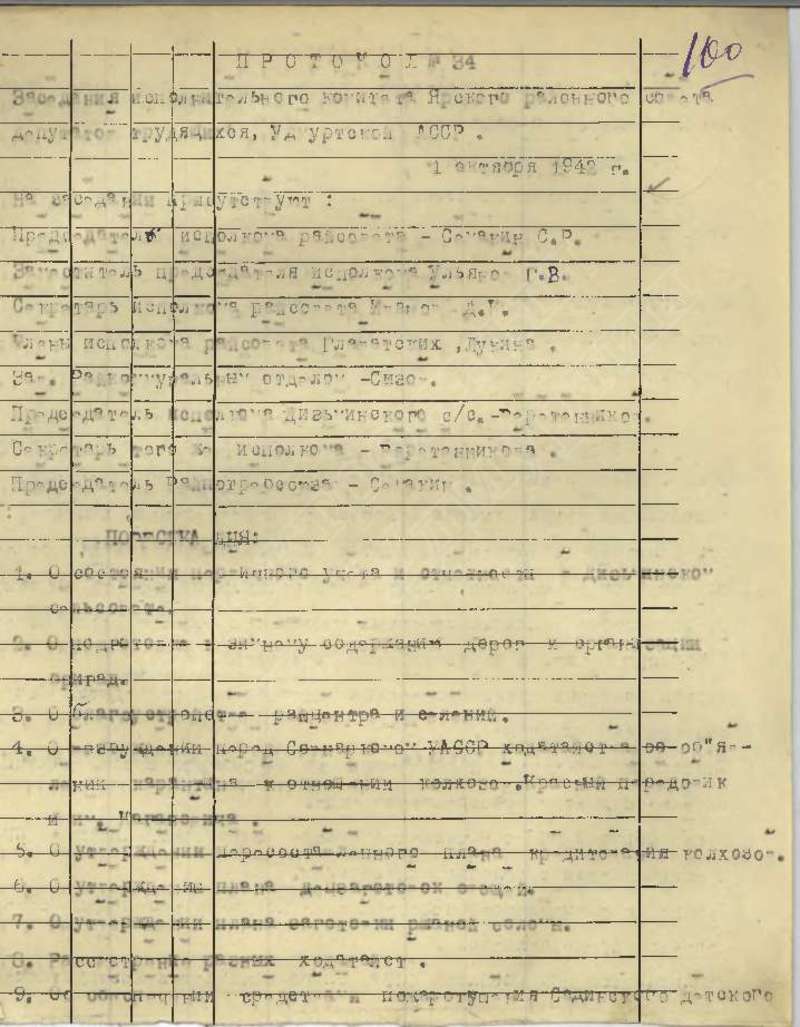 100
ПРОТОКОЛ № 34
Заседания исполнительного комитета Ярского районного совета
депутатов трудящихся, Удмуртской АССР .
1 октября 1942 г.
На заседании присутствуют :
Председатель исполкома райсовета - Сунакин С.Р.
Заместитель председателя исполкома Ульянов Г.В.
Секретарь исполкома райсовета Иванов
Члены исполкома райсовета , Лукина .
Зав. отделом -Сизов.
Председатель исполкома Дизьминского с/с.-Веретенников.
Секретарь того же исполкома - Веретенникова .
Председатель Райпотребсоюза -
ПОВЕСТКА ДНЯ:
1. О состоянии первичного учета и отчетности в Дизьминском
сельсовете.
2. О подготовке к зимнему содержанию дорог и организации
бригад.
3. О благоустройстве райцентра и селений.
4. О возбуждении перед Совнаркомом УАССР ходатайства об об"яв-
лении карантина в отношении колхозов .Красный Передовик
и им.
5. О утверждении пересоставленного плана кредитования колхозов.
6. О утверждении плана
7. О утверждении плана заготовки ржаной соломы.
8. Рассотрение разных ходатайст .
9. Об обеспечении средствами пожаротушения детского